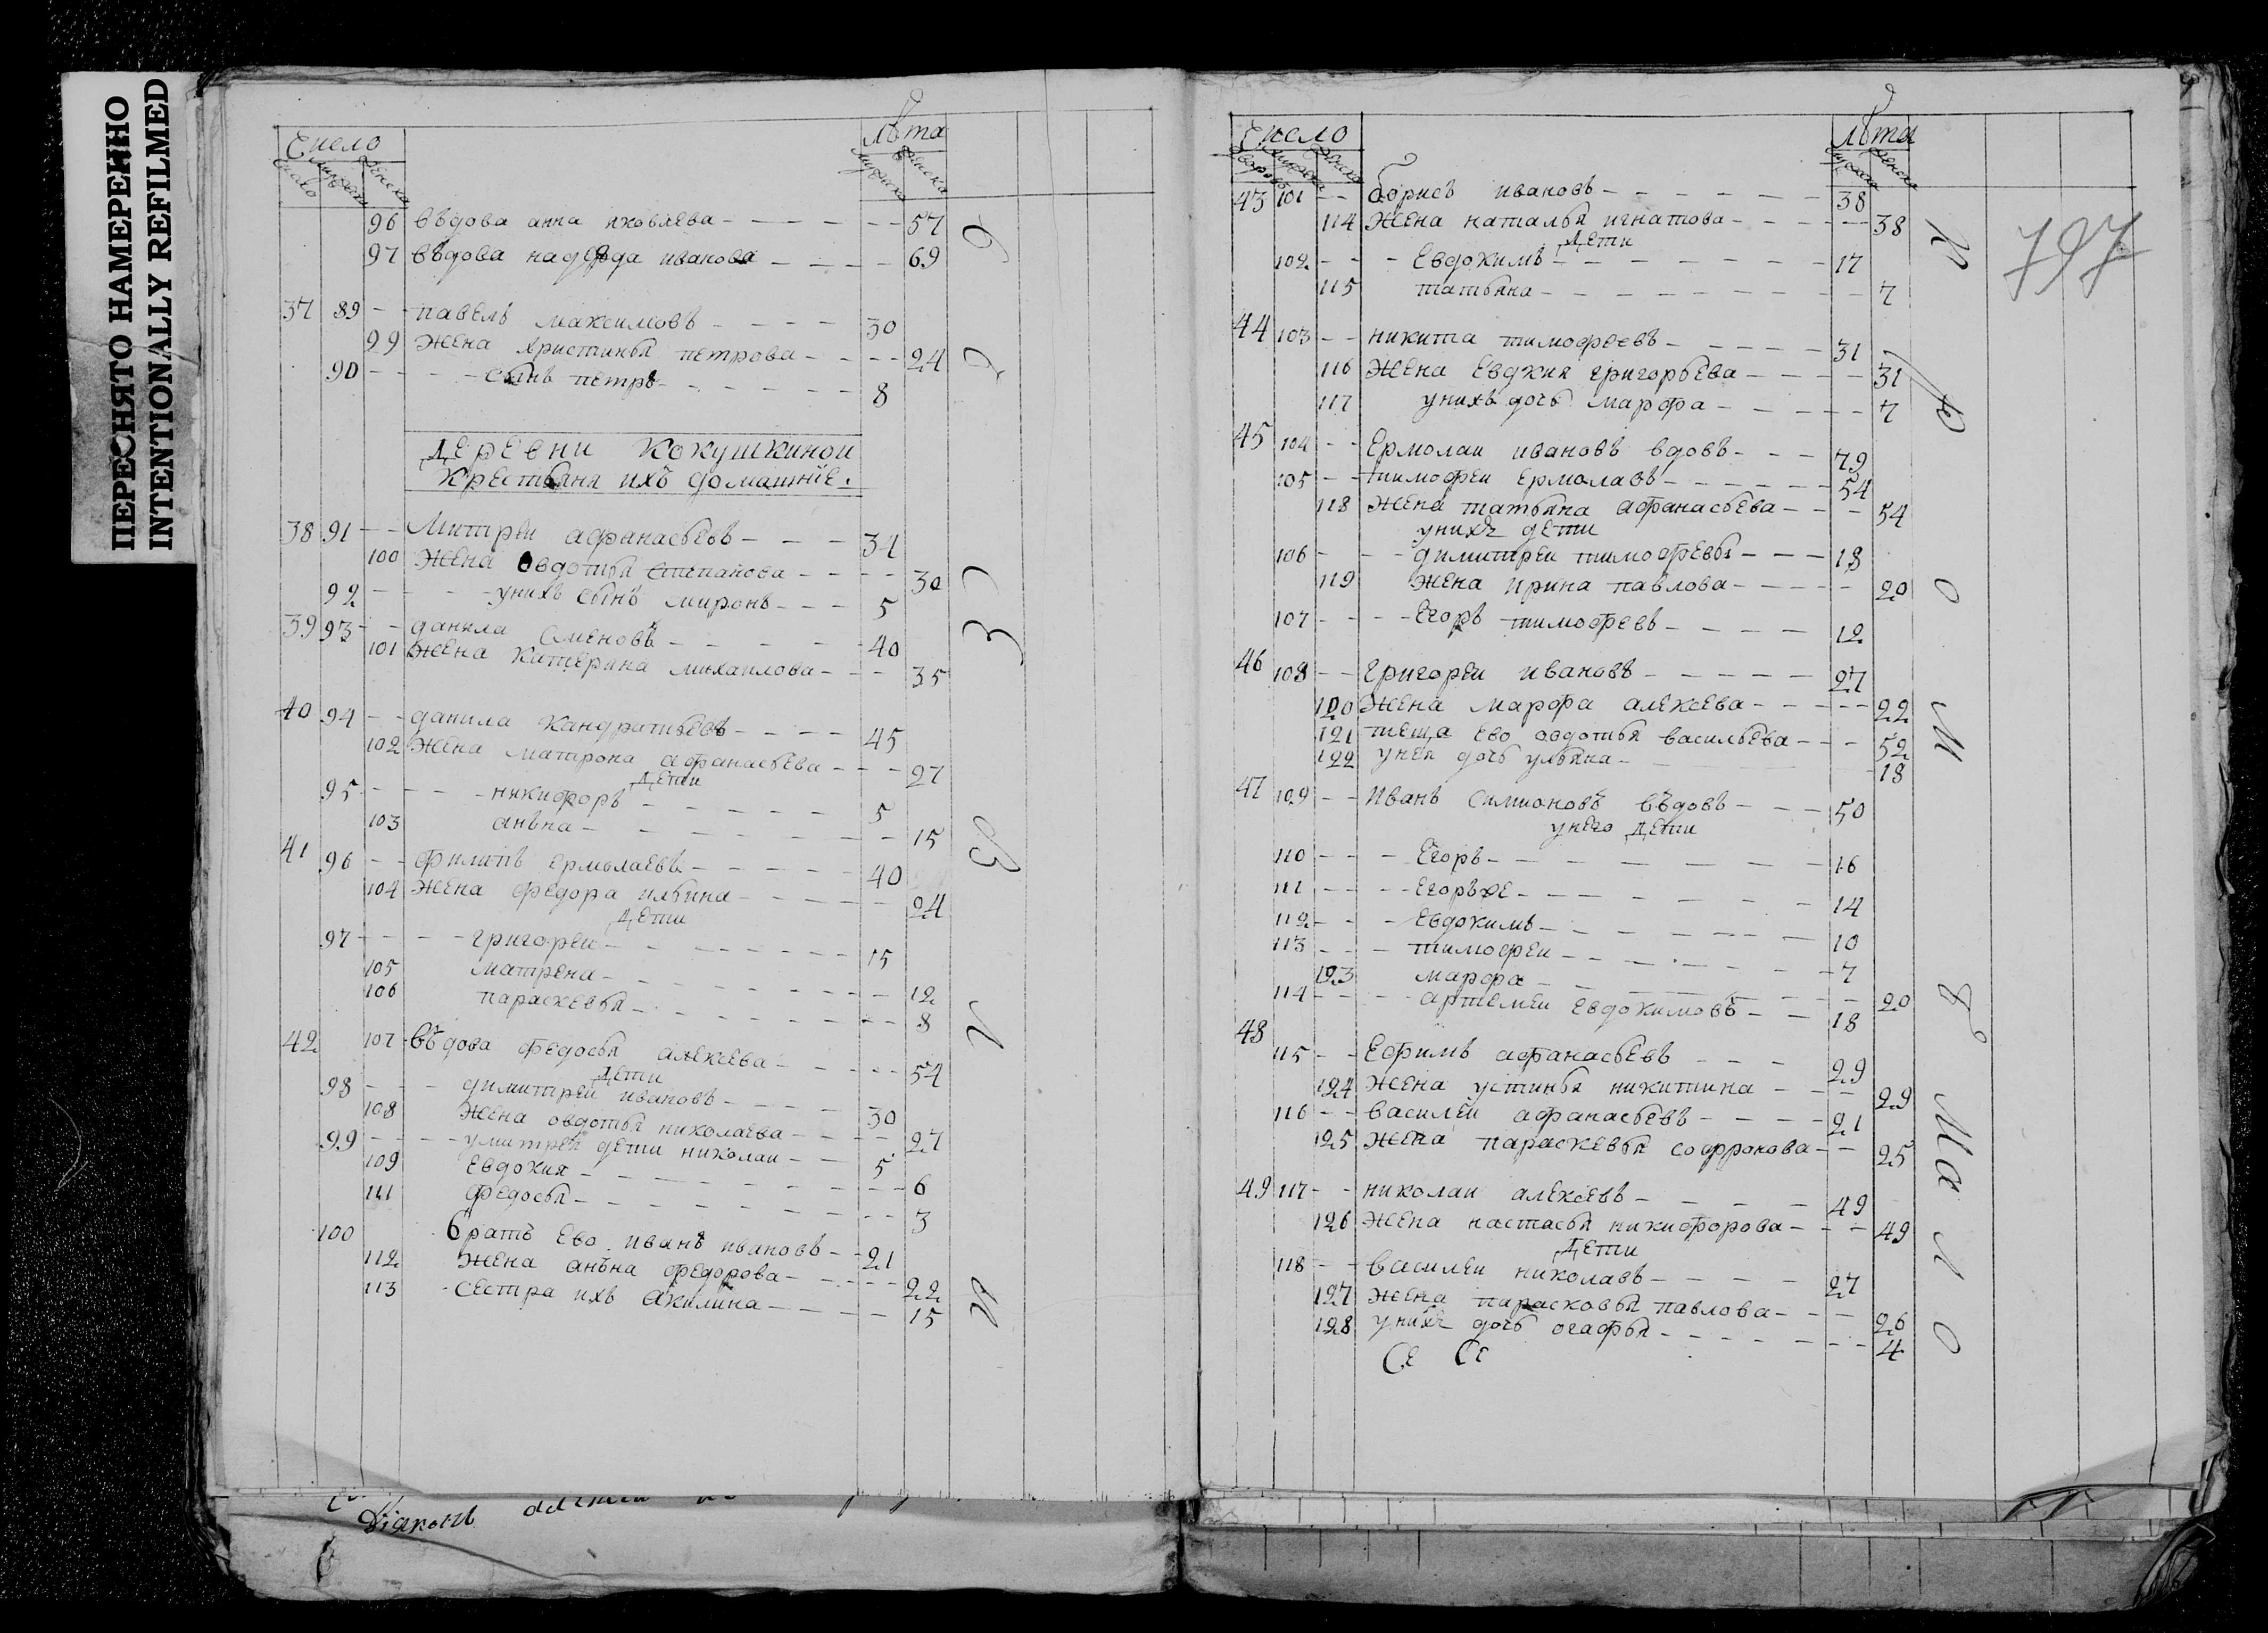 ПЕРЕСНЯТО НАМЕРЕННО
INTENTIONALLY REFILMED
Число
Лѣта
96 вѣдова анна яковлева 57
97 вѣдова надежда иванова 69
37 89 павелъ максимовъ 30
99 жена христинья петрова 24
90 сынъ петръ 8
Деревни Кокушкиной
Крестьяня ихъ домашніе.
38 91 Митрѣи афанасьевъ 34
100 жена овдотья степанова 30
92 унихъ сынъ миронъ 5
39 93 данила Сменовъ 40
101 жена катерина михаилова 35
40 94 данила кандратьевъ 45
102 жена матрона афанасьева 27
дети
95 никифоръ 5
103 анъна 15
41 96 филипъ ермолаевъ 40
104 жена федора ильина 24
дети
97 григореи 15
105 матрена 12
106 параскевья 8
42 107 вѣдова федосья алексева 54
дети
98 димитреи ивановъ 30
108 жена овдотья николаева 27
99 умитрея дети николаи 5
109 евдокия 6
111 федосья 3
100 братъ ево иванъ ивановъ 21
112 жена анъна федорова 22
113 сестра ихъ акилина 15
Діаконъ
Число
Лѣта
797
43 101 борисъ ивановъ 38
114 жена наталья игнатова 38
дети
102 Евдокимъ 17
115 татьяна 7
44 103 никита тимофеевъ 31
116 жена Евдкия григорьева 31
117 унихъ дочь марфа 7
45 104 Ермолаи ивановъ вдовъ 79
105 тимофеи ермолавъ 54
118 жена татьяна афанасьева 54
унихъ дети
106 димитреи тимофревы 18
119 жена ирина павлова 20
107 Егоръ тимофревъ 12
46 108 григореи ивановъ 27
120 жена марфа алексева 22
121 теща ево овдотья васильева 52
122 унея дочь ульяна 18
47 109 Иванъ Симионовъ вѣдовъ 50
унего дети
110 Егоръ 16
111 Егоръже 14
112 Евдокимъ 10
113 тимофеи 7
123 марфа 20
114 артемеи Евдокимовъ 18
48
115 Ефимъ афанасьевъ 29
124 жена устинья никитина 29
116 василеи афанасьевъ 21
125 жена параскевья софронова 25
49 117 николаи алексевъ 49
126 жена настасья никифорова 49
дети
118 василеи николавъ 27
127 жена парасковья павлова 26
128 унихъ дочь огафья 4